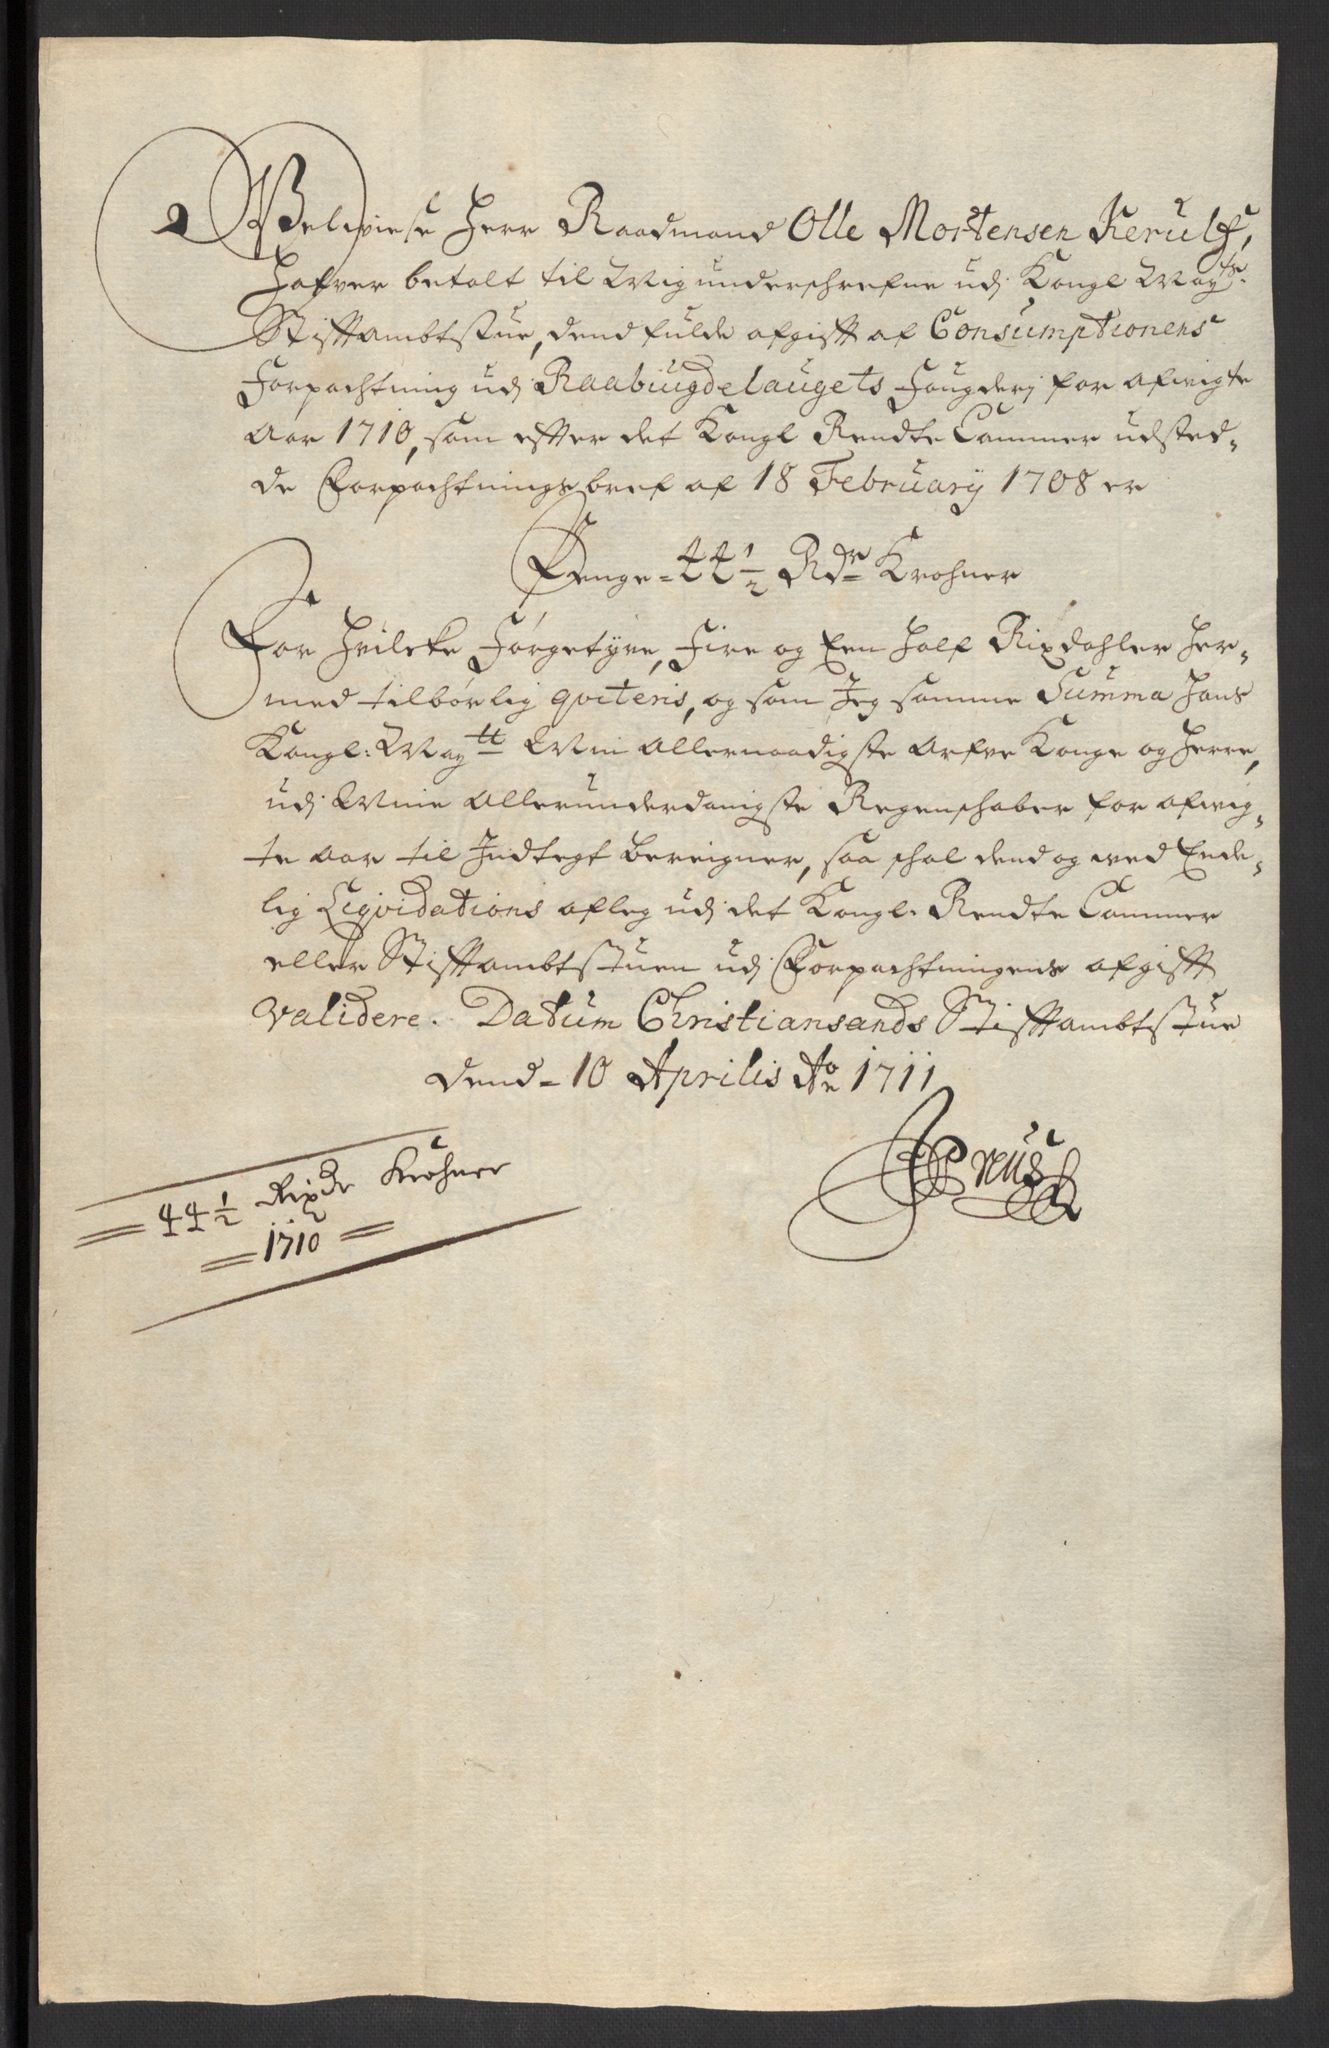 Velwiese Herr Raadmand Olle Mortensen Kerulf,
Hafver betalt til Mig underschrefne udj Kongl Mayts
Stiftambtstue, dend fulde afgift af Consumptionens
Forpachtning udj Raabiugdelaugets Fougderj for afvigte
Aar 1710, som efter det Kongl Rendte Cammer udsted-
de Forpachtnings bref af 18 February 1708 er
Penge = 44 1/2 Rdr Krohner
For Hvilcke Førgetyve, Fire og Een half Rixdahler her-
med tilbørlig qviteris, og som Jeg samme Summa Hans
Kongl: Maytt Min Allernaadigste Arfve Konge og Herre,
udj Mine Allerunderdanigste Regenschaber for afvig-
te Aar til Indtegt bereigner, saa schal dend og ved Ende-
lig Liqvidations afleg udj det Kongl. Rendte Cammer
eller Stiftambtstuen udj Forpachtningens afgift
validere. Datum Christiansands Stiftambtstue
dend = 10 Aprilis Ao 1711
Preus
44 1/2 Rixdr Krohner
1710